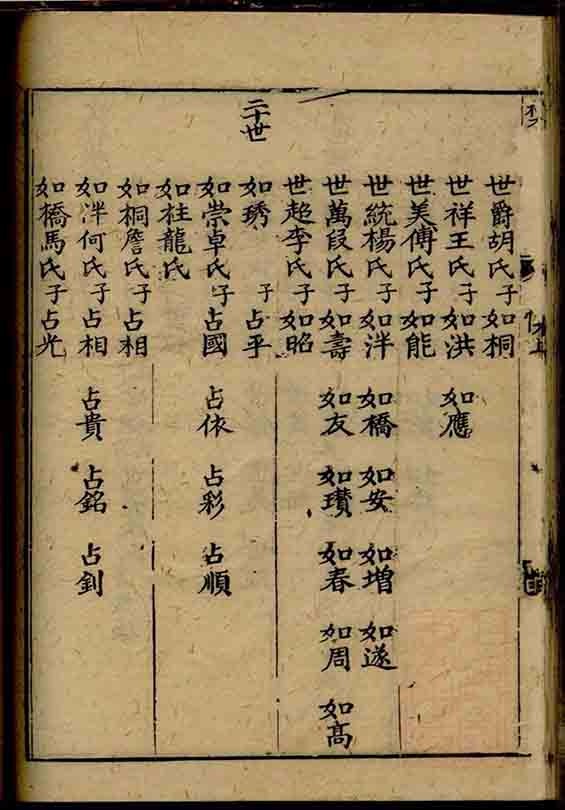 世爵胡氏子如桐
世祥王氏子如洪 如應
世美傅氏子如能
世統楊氏子如泮 如橋 如安 如增 如遂
世萬段氏子如壽 如友 如瓚 如春 如周 如高
世超李氏子如昭
二十世
如琇 子占平
如崇卓氏子占國 占依 占彩 占順
如柱龍氏
如桐詹氏子占相
如泮何氏子占相 占貴 占銘 占釗
如橋馬氏子占光